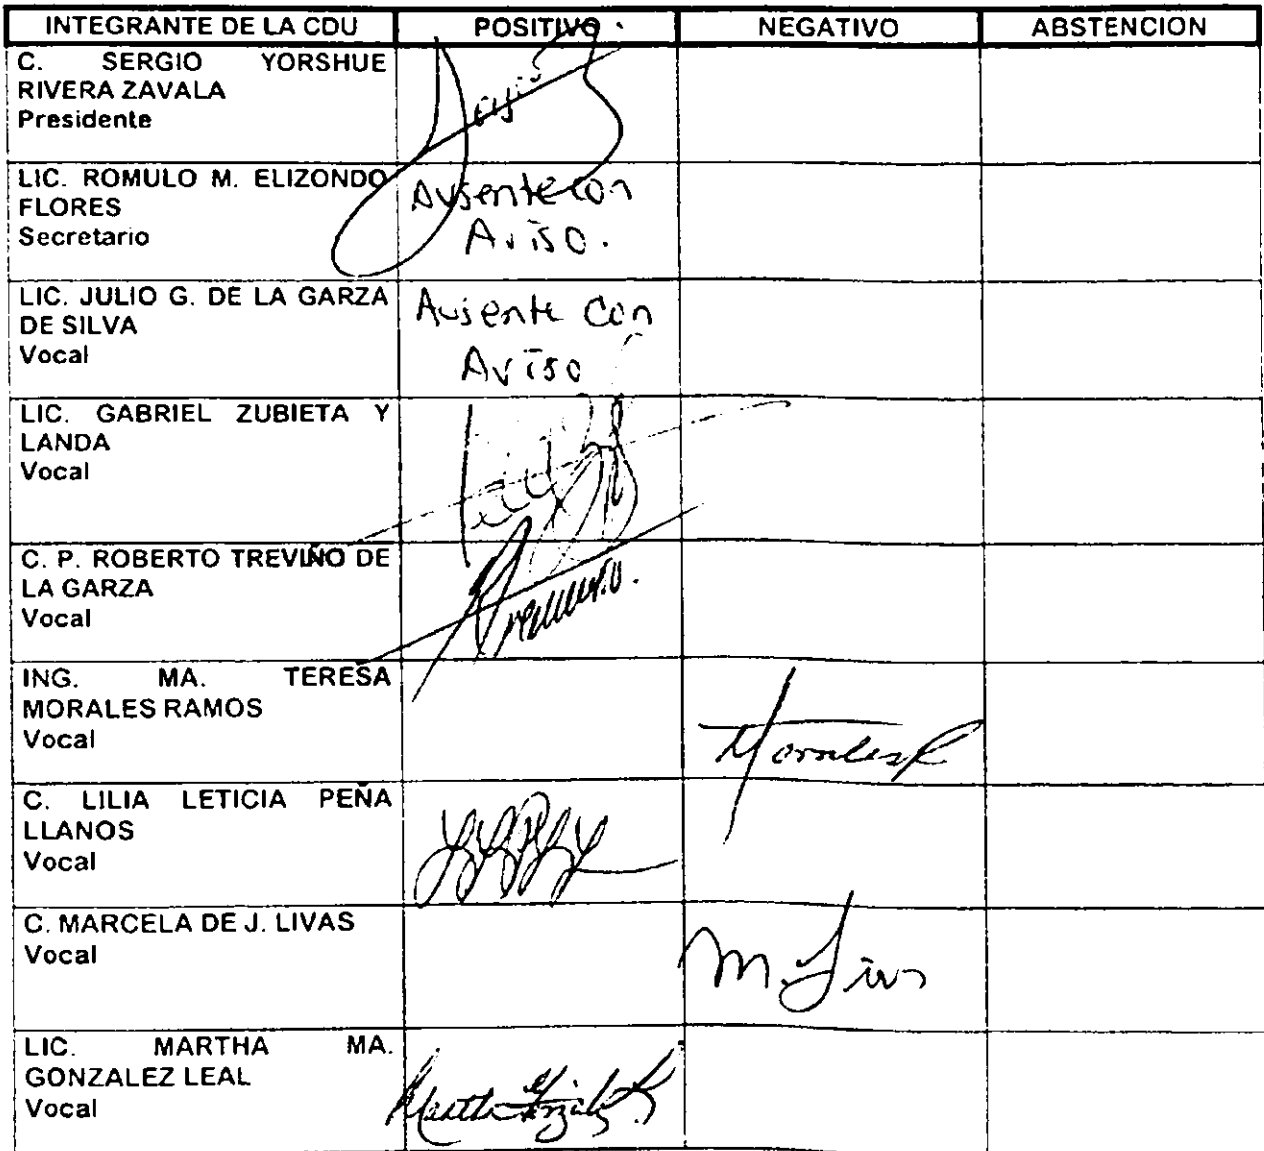 INTEGRANTE DE LA CDU POSITIVO NEGATIVO ABSTENCION
C. SERGIO YORSHUE
RIVERA ZAVALA
Presidente
LIC. ROMULO M. ELIZONDO
FLORES
Secretario
Ausente con
Aviso.
LIC. JULIO G. DE LA GARZA
DE SILVA
Vocal
Ausente Con
Aviso
LIC. GABRIEL ZUBIETA Y
LANDA
Vocal
C. P. ROBERTO TREVIÑO DE
LA GARZA
Vocal
ING. MA. TERESA
MORALES RAMOS
Vocal
Morales R
C. LILIA LETICIA PEÑA
LLANOS
Vocal
C. MARCELA DE J. LIVAS
Vocal
M. Livas
LIC. MARTHA MA.
GONZALEZ LEAL
Vocal